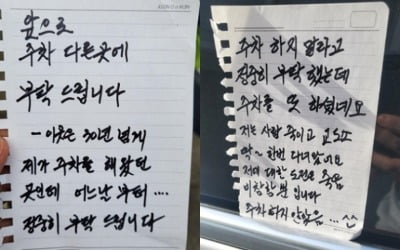 앞으로
주차 다른곳에
부탁 드립니다
-이곳은 30년 넘게
제가 주차를 해왔던
곳인데 어느날 부터 ....
정중히 부탁 드립니다
주차 하지 말라고
정중히 부탁 했는데
주차를 또 하셨네요
저는 사람 죽이고 교도소
딱~ 한번 다녀왔어요
저에 대한 도전은 죽음
이상함 뿐 입니다
주차 하지 않았음 ... ^^